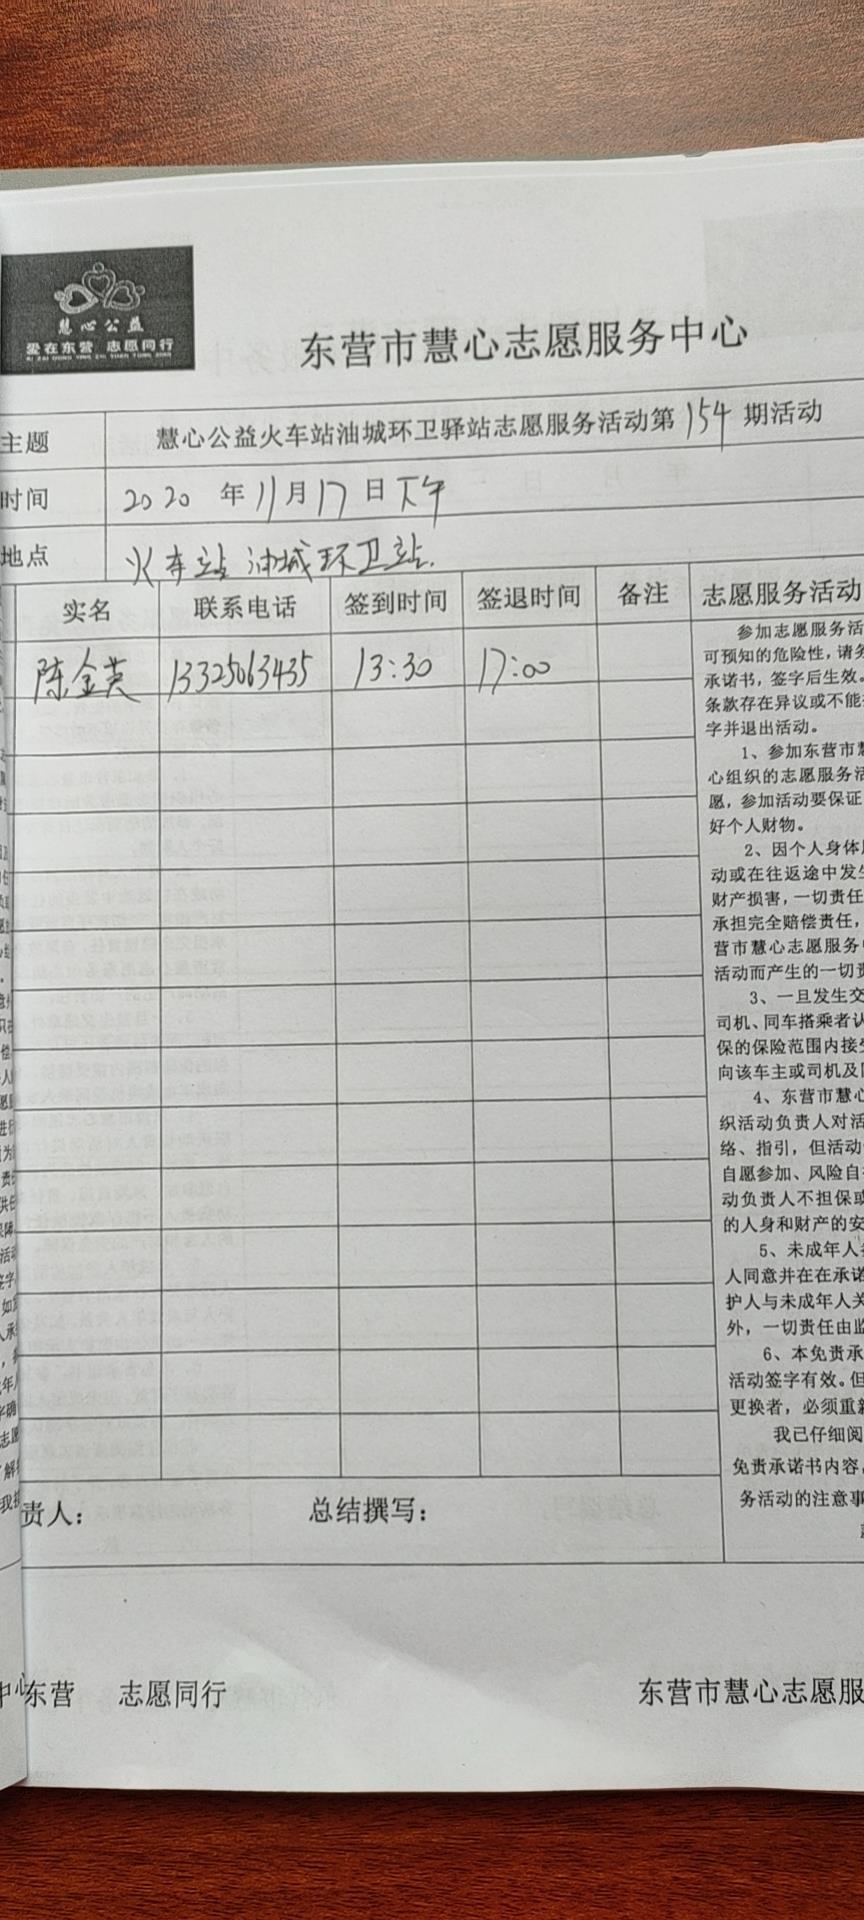 慧心公益
爱在东营 志愿同行
AI ZAI DONG YING ZHI YUAN TONG XING
东营市慧心志愿服务中心
主题 慧心公益火车站油城环卫驿站志愿服务活动第154期活动
时间 2020年11月17日下午
地点 火车站油城环卫站.
实名 联系电话 签到时间 签退时间 备注 志愿服务活动
陈金英 13325063435 13:30 17:00
参加志愿服务活
可预知的危险性,请务
承诺书,签字后生效。
条款存在异议或不能
字并退出活动。
1、参加东营市慧
心组织的志愿服务活
愿,参加活动要保证
好个人财物。
2、因个人身体
动或在往返途中发生
财产损害,一切责任
承担完全赔偿责任,
营市慧心志愿服务中
活动而产生的一切责
3、一旦发生交
司机、同车搭乘者认
保的保险范围内接受
向该车主或司机及
4、东营市慧心
织活动负责人对活
络、指引,但活动
自愿参加、风险自
动负责人不担保或
的人身和财产的安
5、未成年人
人同意并在在承诺
护人与未成年人关
外,一切责任由监
6、本免责承
活动签字有效。但
更换者,必须重新
我已仔细阅
免责承诺书内容,
务活动的注意事
责人: 总结撰写:
东营 志愿同行 东营市慧心志愿服